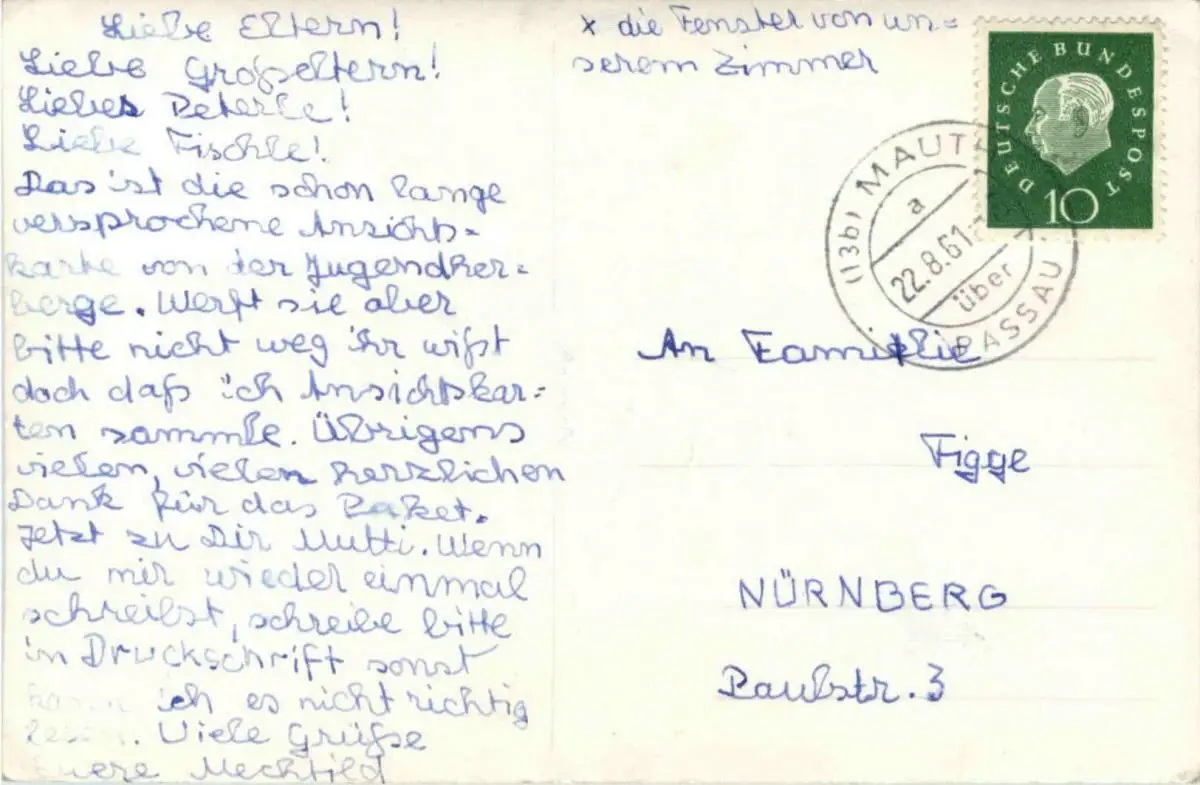 Liebe Eltern!
Liebe Großeltern!
Liebes Peterle!
Liebe Fischle!
Das ist die schon lange
versprochene Ansichts=
karte von der Jugendher=
berge. Werft sie aber
bitte nicht weg ihr wißt
doch daß ich Ansichtskar=
ten sammle. Übrigens
vielen, vielen herzlichen
Dank für das Paket.
Jetzt zu Dir Mutti. Wenn
du mir wieder einmal
schreibst, schreibe bitte
in Druckschrift sonst
kann ich es nicht richtig
lesen. Viele Grüße
Euere Mechtild
x die Fenster von un=
serem Zimmer
DEUTSCHE BUNDESPOST
10
(13b) MAUTH
a
22.8.61
über
PASSAU
An Familie
Figge
NÜRNBERG
Paulstr. 3